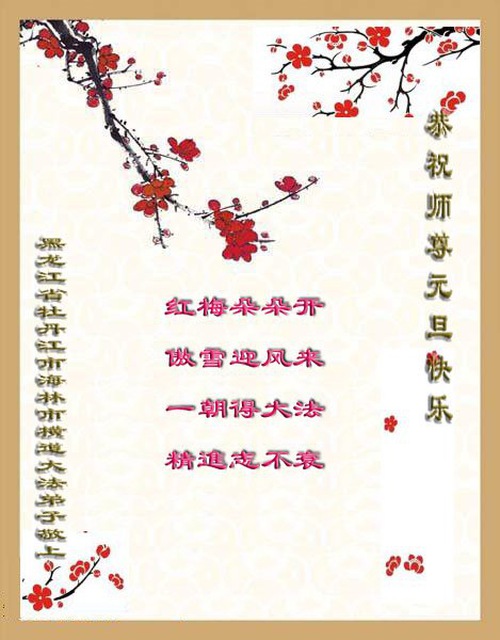 恭祝师尊元旦快乐
红梅朵朵开
傲雪迎风来
一朝得大法
精進志不衰
黑龙江省牡丹江市海林市横道大法弟子敬上